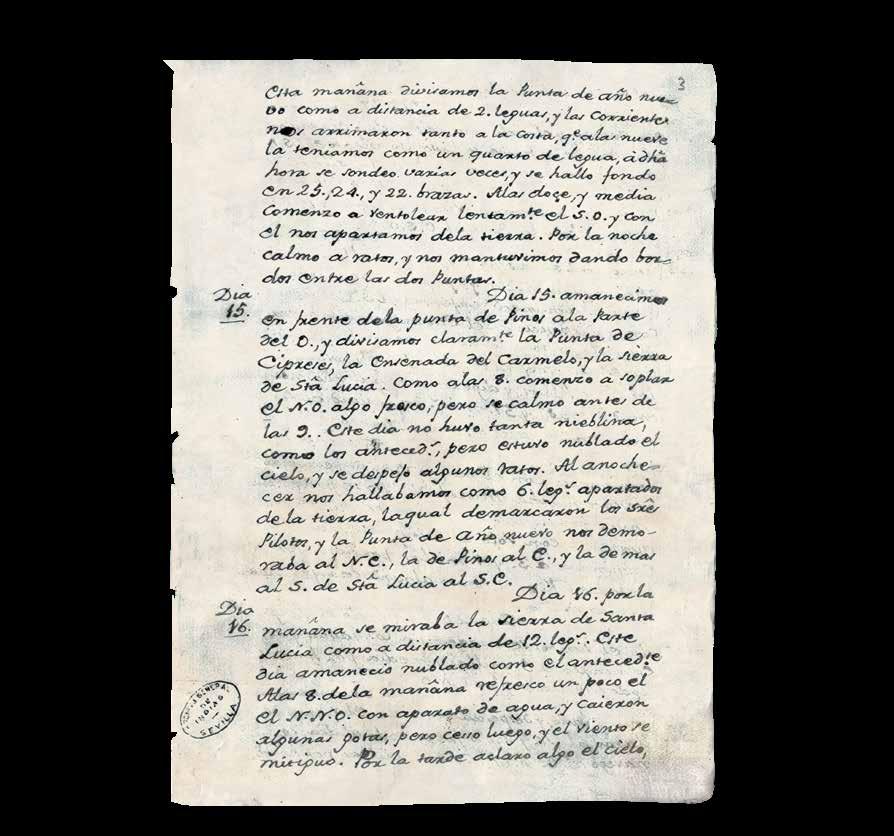 3
Esta mañana divisamos la Punta de año nue=
vo como a distancia de 2. leguas, y las corrientes
nos arrimaron tanto a la costa, qe. alas nueve
la teniamos como un quarto de legua, à dha
hora se sondeo varias veces, y se hallo fondo
en 25., 24., y 22. brazas. Alas doçe, y media
comenzo a ventolear lentamte. el S.O. y con
el nos apartamos dela tierra. Por la noche
calmo a ratos, y nos mantuvimos dando bor-
dos entre las dos Puntas.
Dia
15.
Dia 15. amanecimos
en frente dela punta de Pinos ala parte
del O., y divisamos claramte. la Punta de
Cipreses, la Ensenada del Carmelo, y la sierra
de Sta Lucia. Como alas 8. comenzo a soplar
el N.O. algo fresco, pero se calmo antes de
las 9.. Este dia no huvo tanta nieblina,
como los anteceds., pero estuvo nublado el
cielo, y se despejo algunos ratos. Al anoche=
cer nos hallabamos como 6. legs. apartados
de la tierra, laqual demarcaron los Sres
Pilotos, y la Punta de Año nuevo nos demo-
raba al N.E., la de Pinos al E., y la de mas
al S. de Sta Lucia al S.E.
Dia
16.
Dia 16. por la
mañana se miraba la sierra de Santa
Lucia como a distancia de 12. legs. Este
dia amanecio nublado como el antecedte.
Alas 8. dela mañana refresco un poco el
el N.N.O. con aparato de agua, y caieron
algunas gotas, pero cesso luego, y el viento se
mitiguo. Por la tarde aclaro algo el cielo,
ARCHIVO GENERAL
DE
INDIAS
SEVILLA